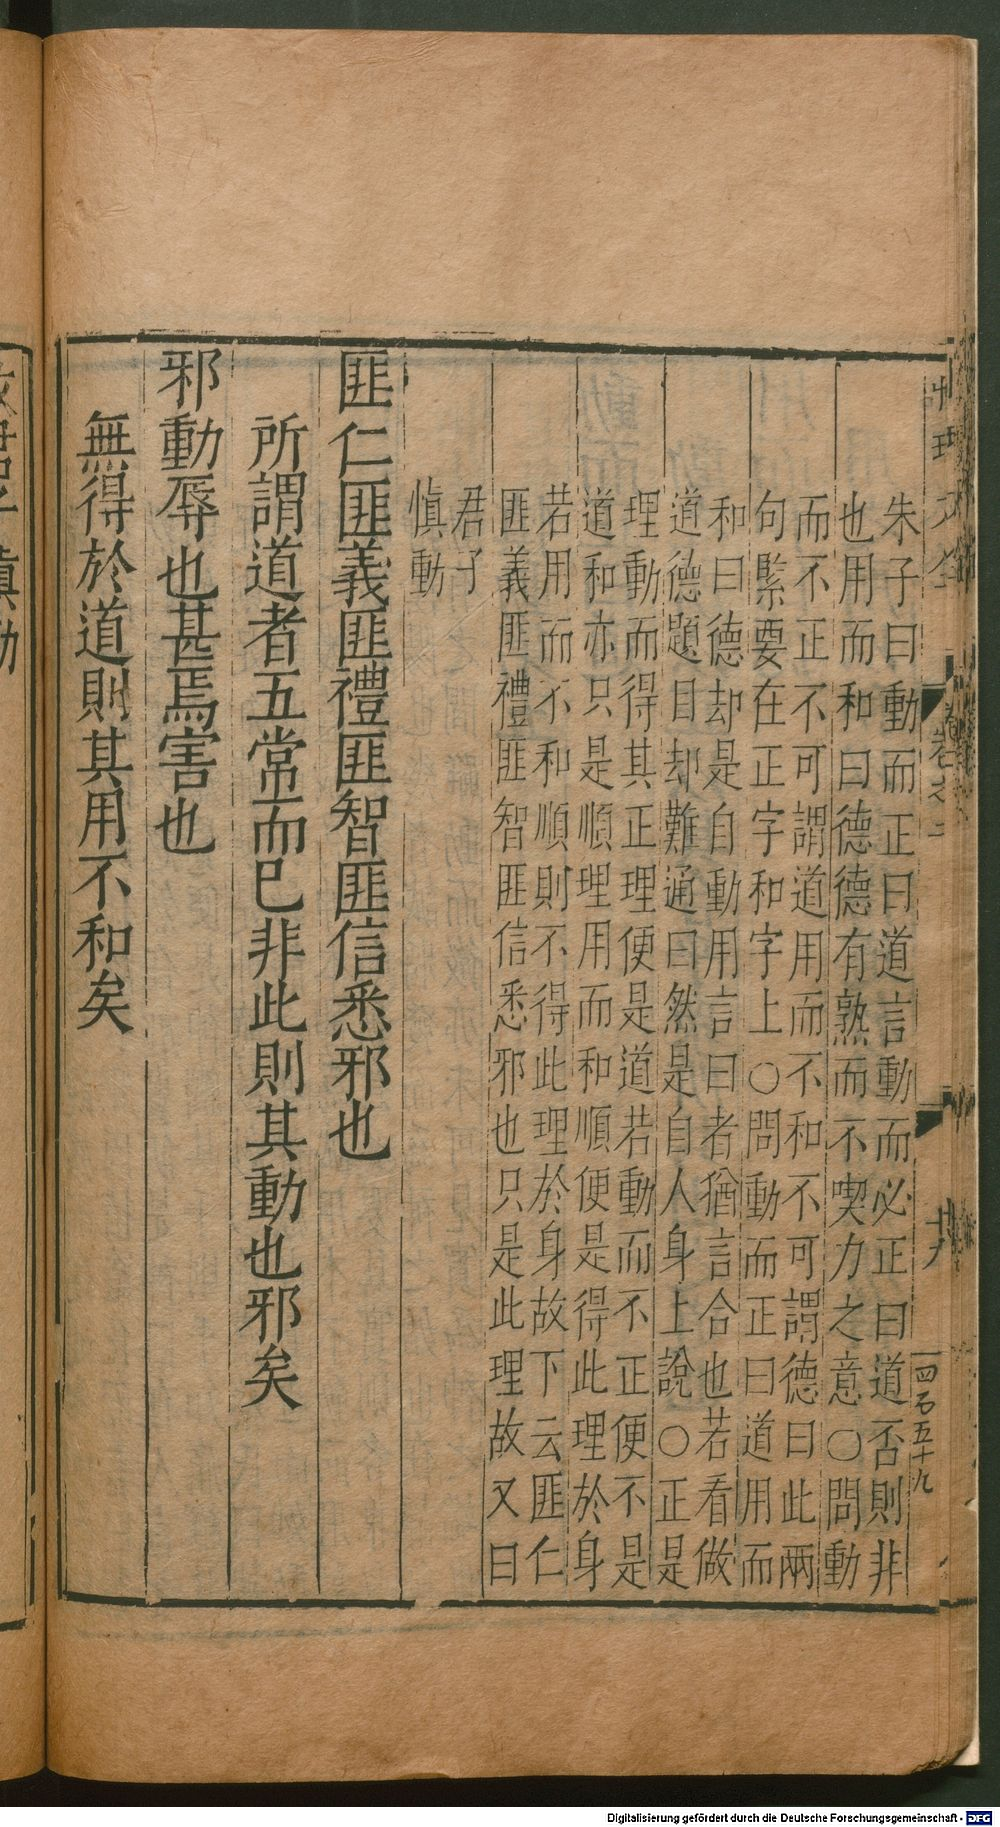 朱子曰動而正曰道言動而必正曰道否則非
也用而和曰德德有熟而不喫力之意〇問動
而不正不可謂道用而不和不可謂德曰此兩
句緊要在正字和字上〇問動而正曰道用而
和曰德却是自動用言曰者猶言合也若看做
道德題目却難通曰然是自人身上說〇正是
理動而得其正理便是道若動而不正便不是
道和亦只是順理用而和順便是得此理於身
若用而不和順則不得此理於身故下云匪仁
匪義匪禮匪智匪信悉邪也只是此理故又曰
君子
慎動
匪仁匪義匪禮匪智匪信悉邪也
所謂道者五常而已非此則其動也邪矣
邪動辱也甚焉害也
無得於道則其用不和矣
卷之二
十九
四百五十九
慎動
Digitalisierung gefördert durch die Deutsche Forschungsgemeinschaft - DFG